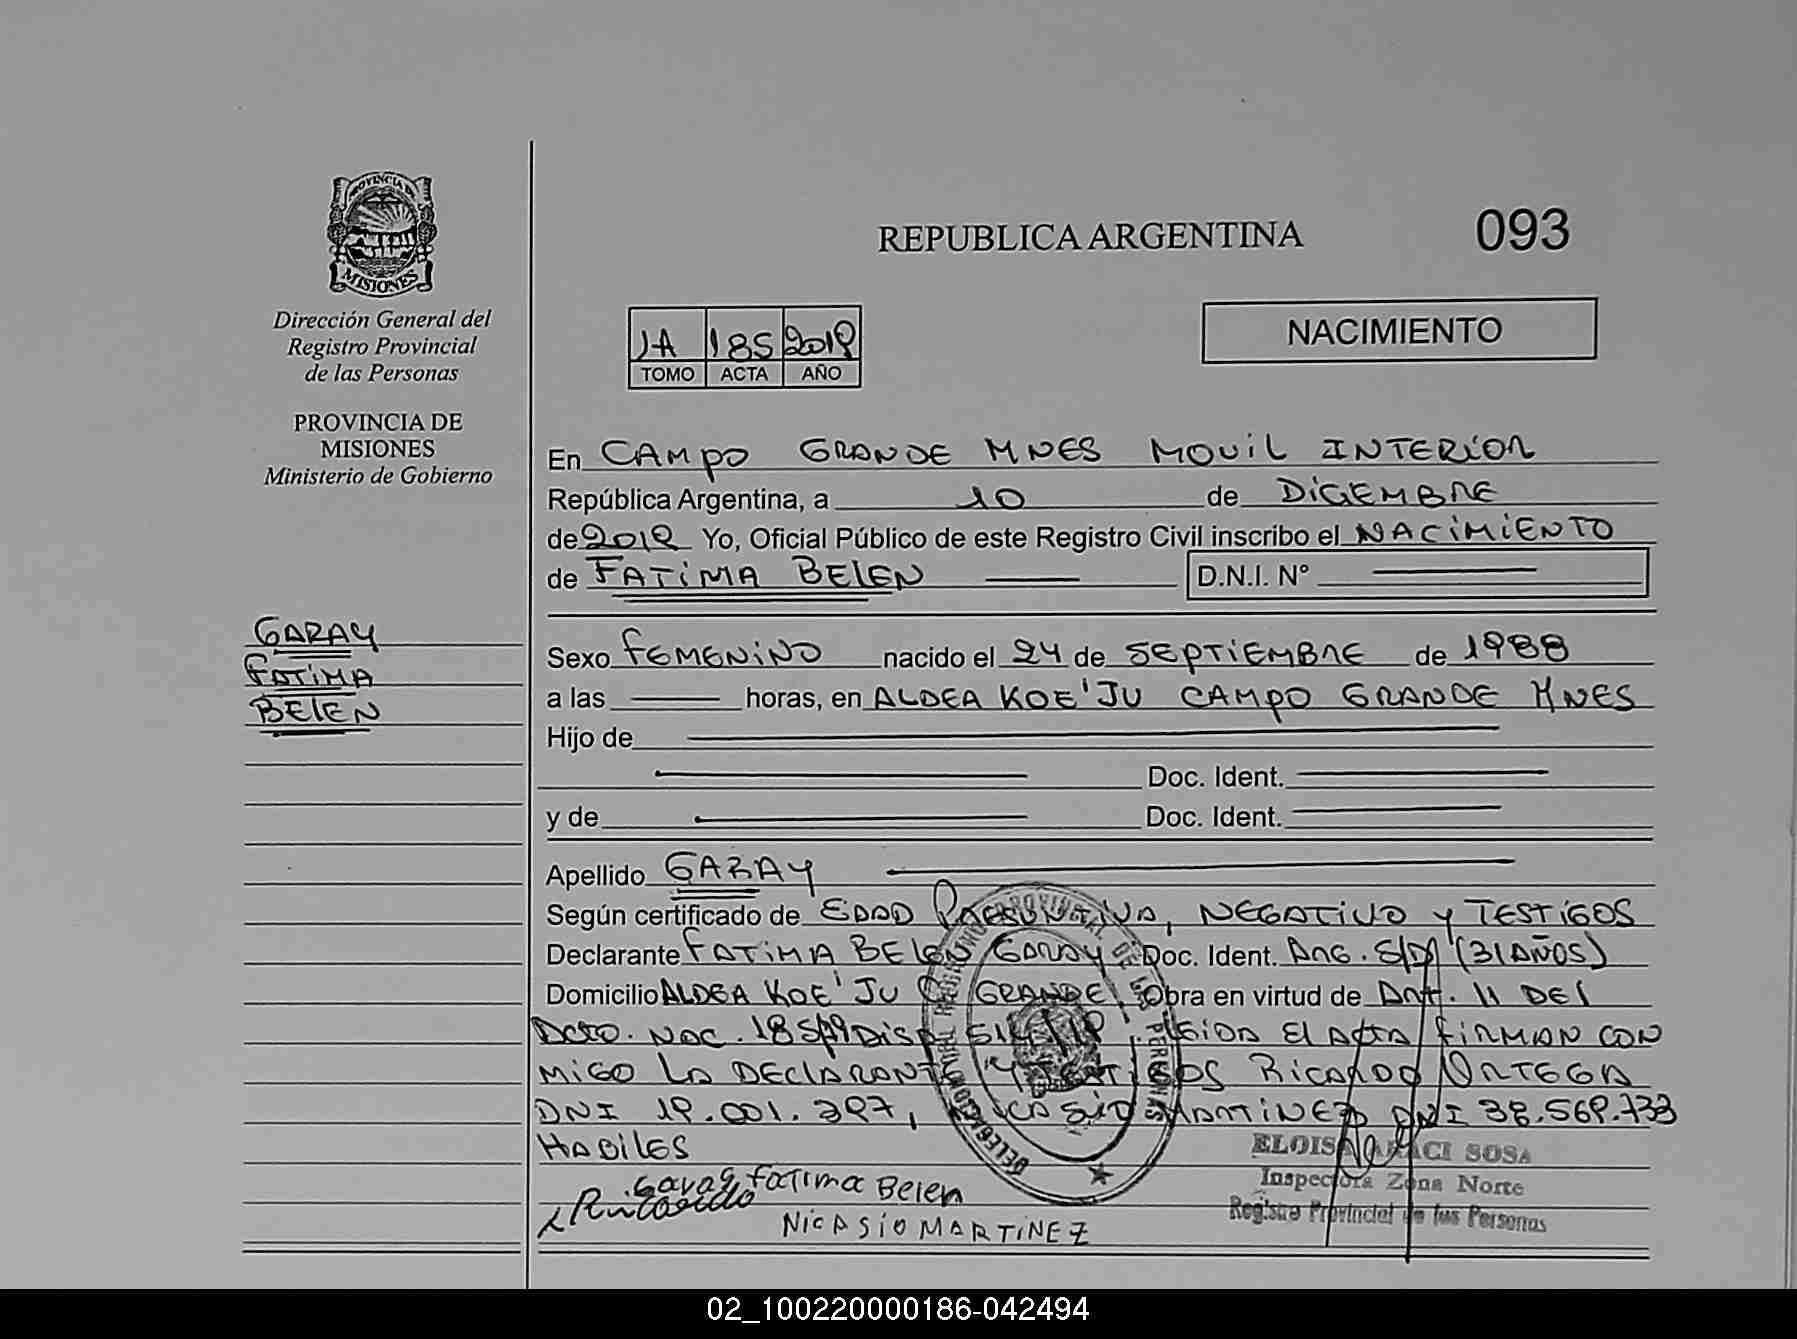 PROVINCIA DE
MISIONES
Dirección General del
Registro Provincial
de las Personas
PROVINCIA DE
MISIONES
Ministerio de Gobierno
GARAY
FATIMA
BELEN
REPUBLICA ARGENTINA
093
1A 185 2019
TOMO ACTA AÑO
NACIMIENTO
En CAMPO GRANDE MNES MOVIL INTERIOR
República Argentina, a 10 de DICIEMBRE
de 2019 Yo, Oficial Público de este Registro Civil inscribo el NACIMIENTO
de FATIMA BELEN D.N.I. N°
Sexo FEMENINO nacido el 24 de SEPTIEMBRE de 1988
a las horas, en ALDEA KOE'JU CAMPO GRANDE MNES
Hijo de
Doc. Ident.
y de Doc. Ident.
Apellido GARAY
Según certificado de EDAD PRESUNTIVA, NEGATIVO Y TESTIGOS
Declarante FATIMA BELEN GARAY Doc. Ident. ARG. S/D (31 AÑOS)
Domicilio ALDEA KOE'JU C. GRANDE. Obra en virtud de ART. 11 DEL
DCTO. NAC. 185/19 DISP. LEIDA EL ACTA FIRMAN CON
MIGO LA DECLARANTE Y TESTIGOS RICARDO ORTEGA
DNI 19.001.397, NICASIO MARTINEZ DNI 38.569.733
HABILES
Garay Fatima Belen
NICASIO MARTINEZ
DELEGACION REGISTRO PROVINCIAL DE LAS PERSONAS
ELOISA ARACI SOSA
Inspectora Zona Norte
Registro Provincial de las Personas
02_100220000186-042494